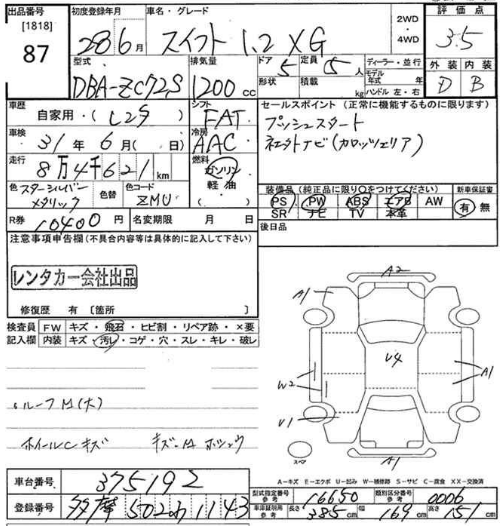 出品番号 [1818] 87
初度登録年月 28年6月
車名・グレード スイフト 1.2 XG
2WD ・ 4WD
評価点 3.5
型式 DBA-ZC72S
排気量 1200cc
ドア 5 形状
定員 5人 積載 kg
ディーラー・並行
モデル年式 年
ハンドル 左・右
外装 D 内装 B
車歴 自家用・(レンタ)
シフト FAT
セールスポイント (正常に機能するものに限ります)
プッシュスタート
車検 31年 6月(日)
冷房 AAC
走行 8万4千621km
燃料 ガソリン 軽油
色 スターシルバーメタリック 色替
色コード ZMU
装備品(純正品に限り○をつけてください)
PS PW ABS エアB AW
SR ナビ TV 本革
新車保証書 有 無
R券 10400円
名変期限 月 日
後日品
注意事項申告欄(不具合内容等は具体的に記入して下さい)
レンタカー会社出品
修復歴 有〔箇所 〕
検査員記入欄
FW キズ・飛石・ヒビ割・リペア跡・×要
内装 キズ・汚レ・コゲ・穴・スレ・キレ・破レ
ルーフM(大)
ホイールCキズ
A2
A1
U4
W2
A1
V1
A1
スペア
A-キズ E-エクボ U-凹み W-補修跡 S-サビ C-腐食 XX-交換済
車台番号 375192
登録番号 多摩 502 わ 1143
型式指定番号 参考 16650
類別区分番号 参考 0006
車庫証明用 参考 長さ 385cm 幅 169cm 高さ 151cm